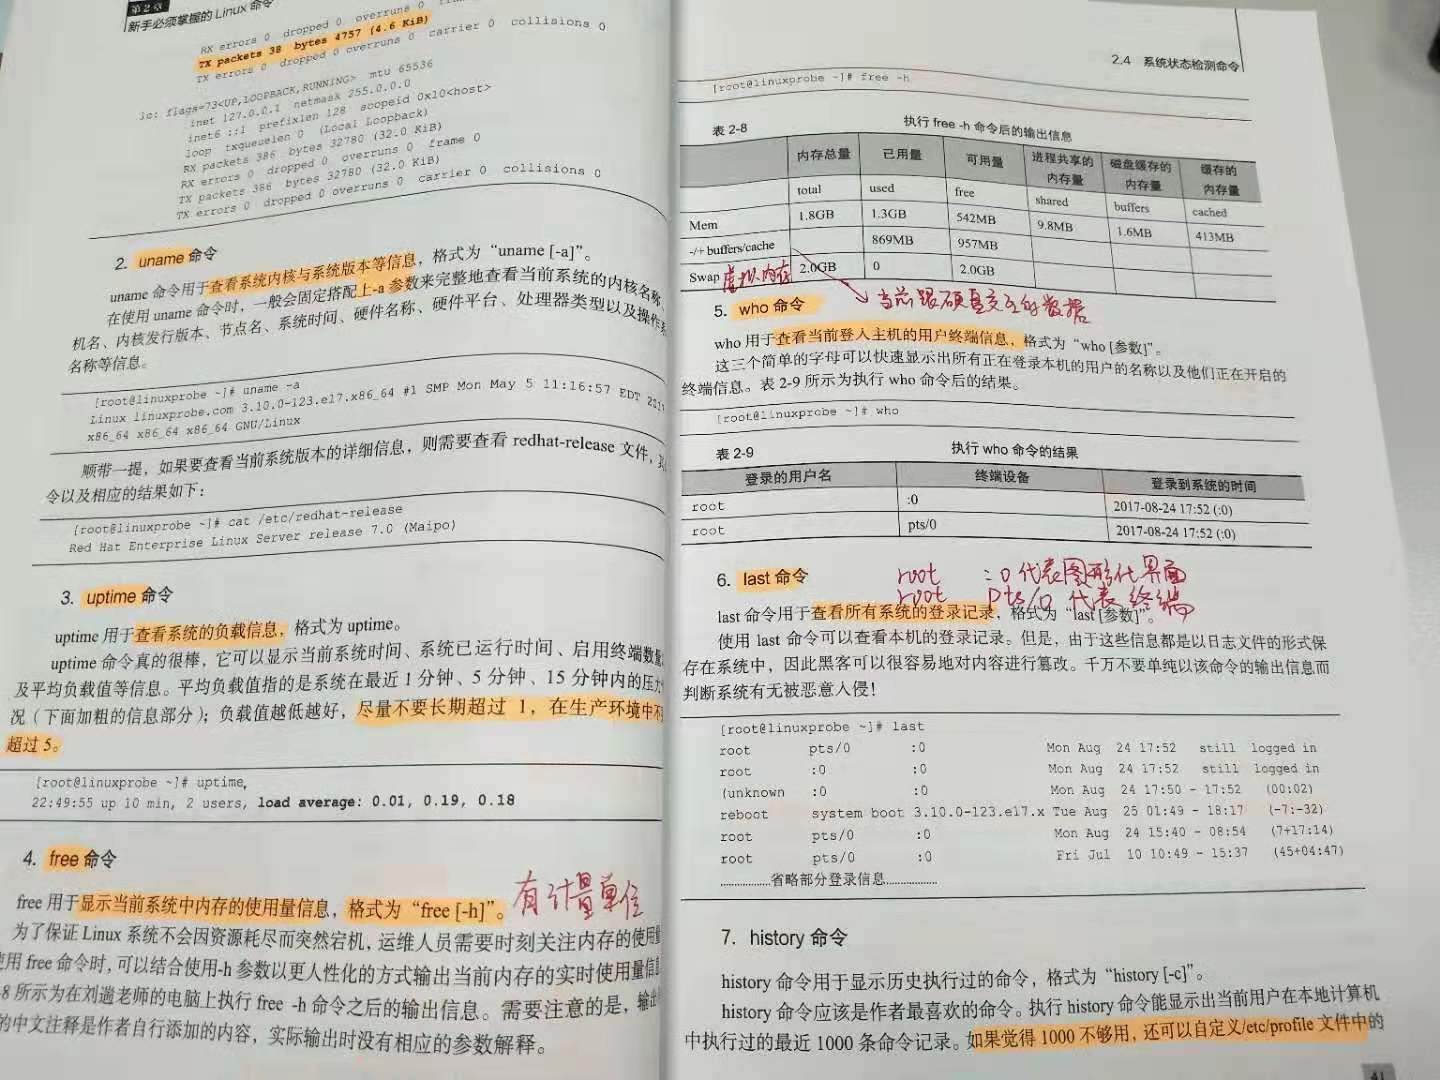 第2章
新手必须掌握的Linux命令
RX errors 0 dropped 0 overruns 0
TX packets 38 bytes 4757 (4.6 KiB)
TX errors 0 dropped 0 overruns 0 carrier 0 collisions 0
lo: flags=73<UP,LOOPBACK,RUNNING> mtu 65536
inet 127.0.0.1 netmask 255.0.0.0
inet6 ::1 prefixlen 128 scopeid 0x10<host>
loop txqueuelen 0 (Local Loopback)
RX packets 386 bytes 32780 (32.0 KiB)
RX errors 0 dropped 0 overruns 0 frame 0
TX packets 386 bytes 32780 (32.0 KiB)
TX errors 0 dropped 0 overruns 0 carrier 0 collisions 0
2. uname 命令
uname 命令用于查看系统内核与系统版本等信息，格式为“uname [-a]”。
在使用 uname 命令时，一般会固定搭配上-a 参数来完整地查看当前系统的内核名称、
机名、内核发行版本、节点名、系统时间、硬件名称、硬件平台、处理器类型以及操作
名称等信息。
[root@linuxprobe ~]# uname -a
Linux linuxprobe.com 3.10.0-123.el7.x86_64 #1 SMP Mon May 5 11:16:57 EDT
x86_64 x86_64 x86_64 GNU/Linux
顺带一提，如果要查看当前系统版本的详细信息，则需要查看 redhat-release 文件，
令以及相应的结果如下：
[root@linuxprobe ~]# cat /etc/redhat-release
Red Hat Enterprise Linux Server release 7.0 (Maipo)
3. uptime 命令
uptime 用于查看系统的负载信息，格式为 uptime。
uptime 命令真的很棒，它可以显示当前系统时间、系统已运行时间、启用终端数量
及平均负载值等信息。平均负载值指的是系统在最近 1 分钟、5 分钟、15 分钟内的压力
况（下面加粗的信息部分）；负载值越低越好，尽量不要长期超过 1，在生产环境中不
超过 5。
[root@linuxprobe ~]# uptime
22:49:55 up 10 min, 2 users, load average: 0.01, 0.19, 0.18
4. free 命令
free 用于显示当前系统中内存的使用量信息，格式为“free [-h]”。 有计量单位
为了保证 Linux 系统不会因资源耗尽而突然宕机，运维人员需要时刻关注内存的使用量
使用 free 命令时，可以结合使用-h 参数以更人性化的方式输出当前内存的实时使用量信息
-8 所示为在刘遄老师的电脑上执行 free -h 命令之后的输出信息。需要注意的是，输出
的中文注释是作者自行添加的内容，实际输出时没有相应的参数解释。
2.4 系统状态检测命令
[root@linuxprobe ~]# free -h
表 2-8 执行 free -h 命令后的输出信息
内存总量 已用量 可用量 进程共享的内存量 磁盘缓存的内存量 缓存的内存量
total used free shared buffers cached
Mem 1.8GB 1.3GB 542MB 9.8MB 1.6MB 413MB
-/+ buffers/cache 869MB 957MB
Swap 虚拟内存 2.0GB 0 2.0GB
当前跟硬盘交互的数据
5. who 命令
who 用于查看当前登入主机的用户终端信息，格式为“who [参数]”。
这三个简单的字母可以快速显示出所有正在登录本机的用户的名称以及他们正在开启的
终端信息。表 2-9 所示为执行 who 命令后的结果。
[root@linuxprobe ~]# who
表 2-9 执行 who 命令的结果
登录的用户名 终端设备 登录到系统的时间
root :0 2017-08-24 17:52 (:0)
root pts/0 2017-08-24 17:52 (:0)
6. last 命令
root :0 代表图形化界面
root pts/0 代表终端
last 命令用于查看所有系统的登录记录，格式为“last [参数]”。
使用 last 命令可以查看本机的登录记录。但是，由于这些信息都是以日志文件的形式保
存在系统中，因此黑客可以很容易地对内容进行篡改。千万不要单纯以该命令的输出信息而
判断系统有无被恶意入侵！
[root@linuxprobe ~]# last
root pts/0 :0 Mon Aug 24 17:52 still logged in
root :0 :0 Mon Aug 24 17:52 still logged in
(unknown :0 :0 Mon Aug 24 17:50 - 17:52 (00:02)
reboot system boot 3.10.0-123.el7.x Tue Aug 25 01:49 - 18:17 (-7:-32)
root pts/0 :0 Mon Aug 24 15:40 - 08:54 (7+17:14)
root pts/0 :0 Fri Jul 10 10:49 - 15:37 (45+04:47)
………………省略部分登录信息………………
7. history 命令
history 命令用于显示历史执行过的命令，格式为“history [-c]”。
history 命令应该是作者最喜欢的命令。执行 history 命令能显示出当前用户在本地计算机
中执行过的最近 1000 条命令记录。如果觉得 1000 不够用，还可以自定义/etc/profile 文件中的
41